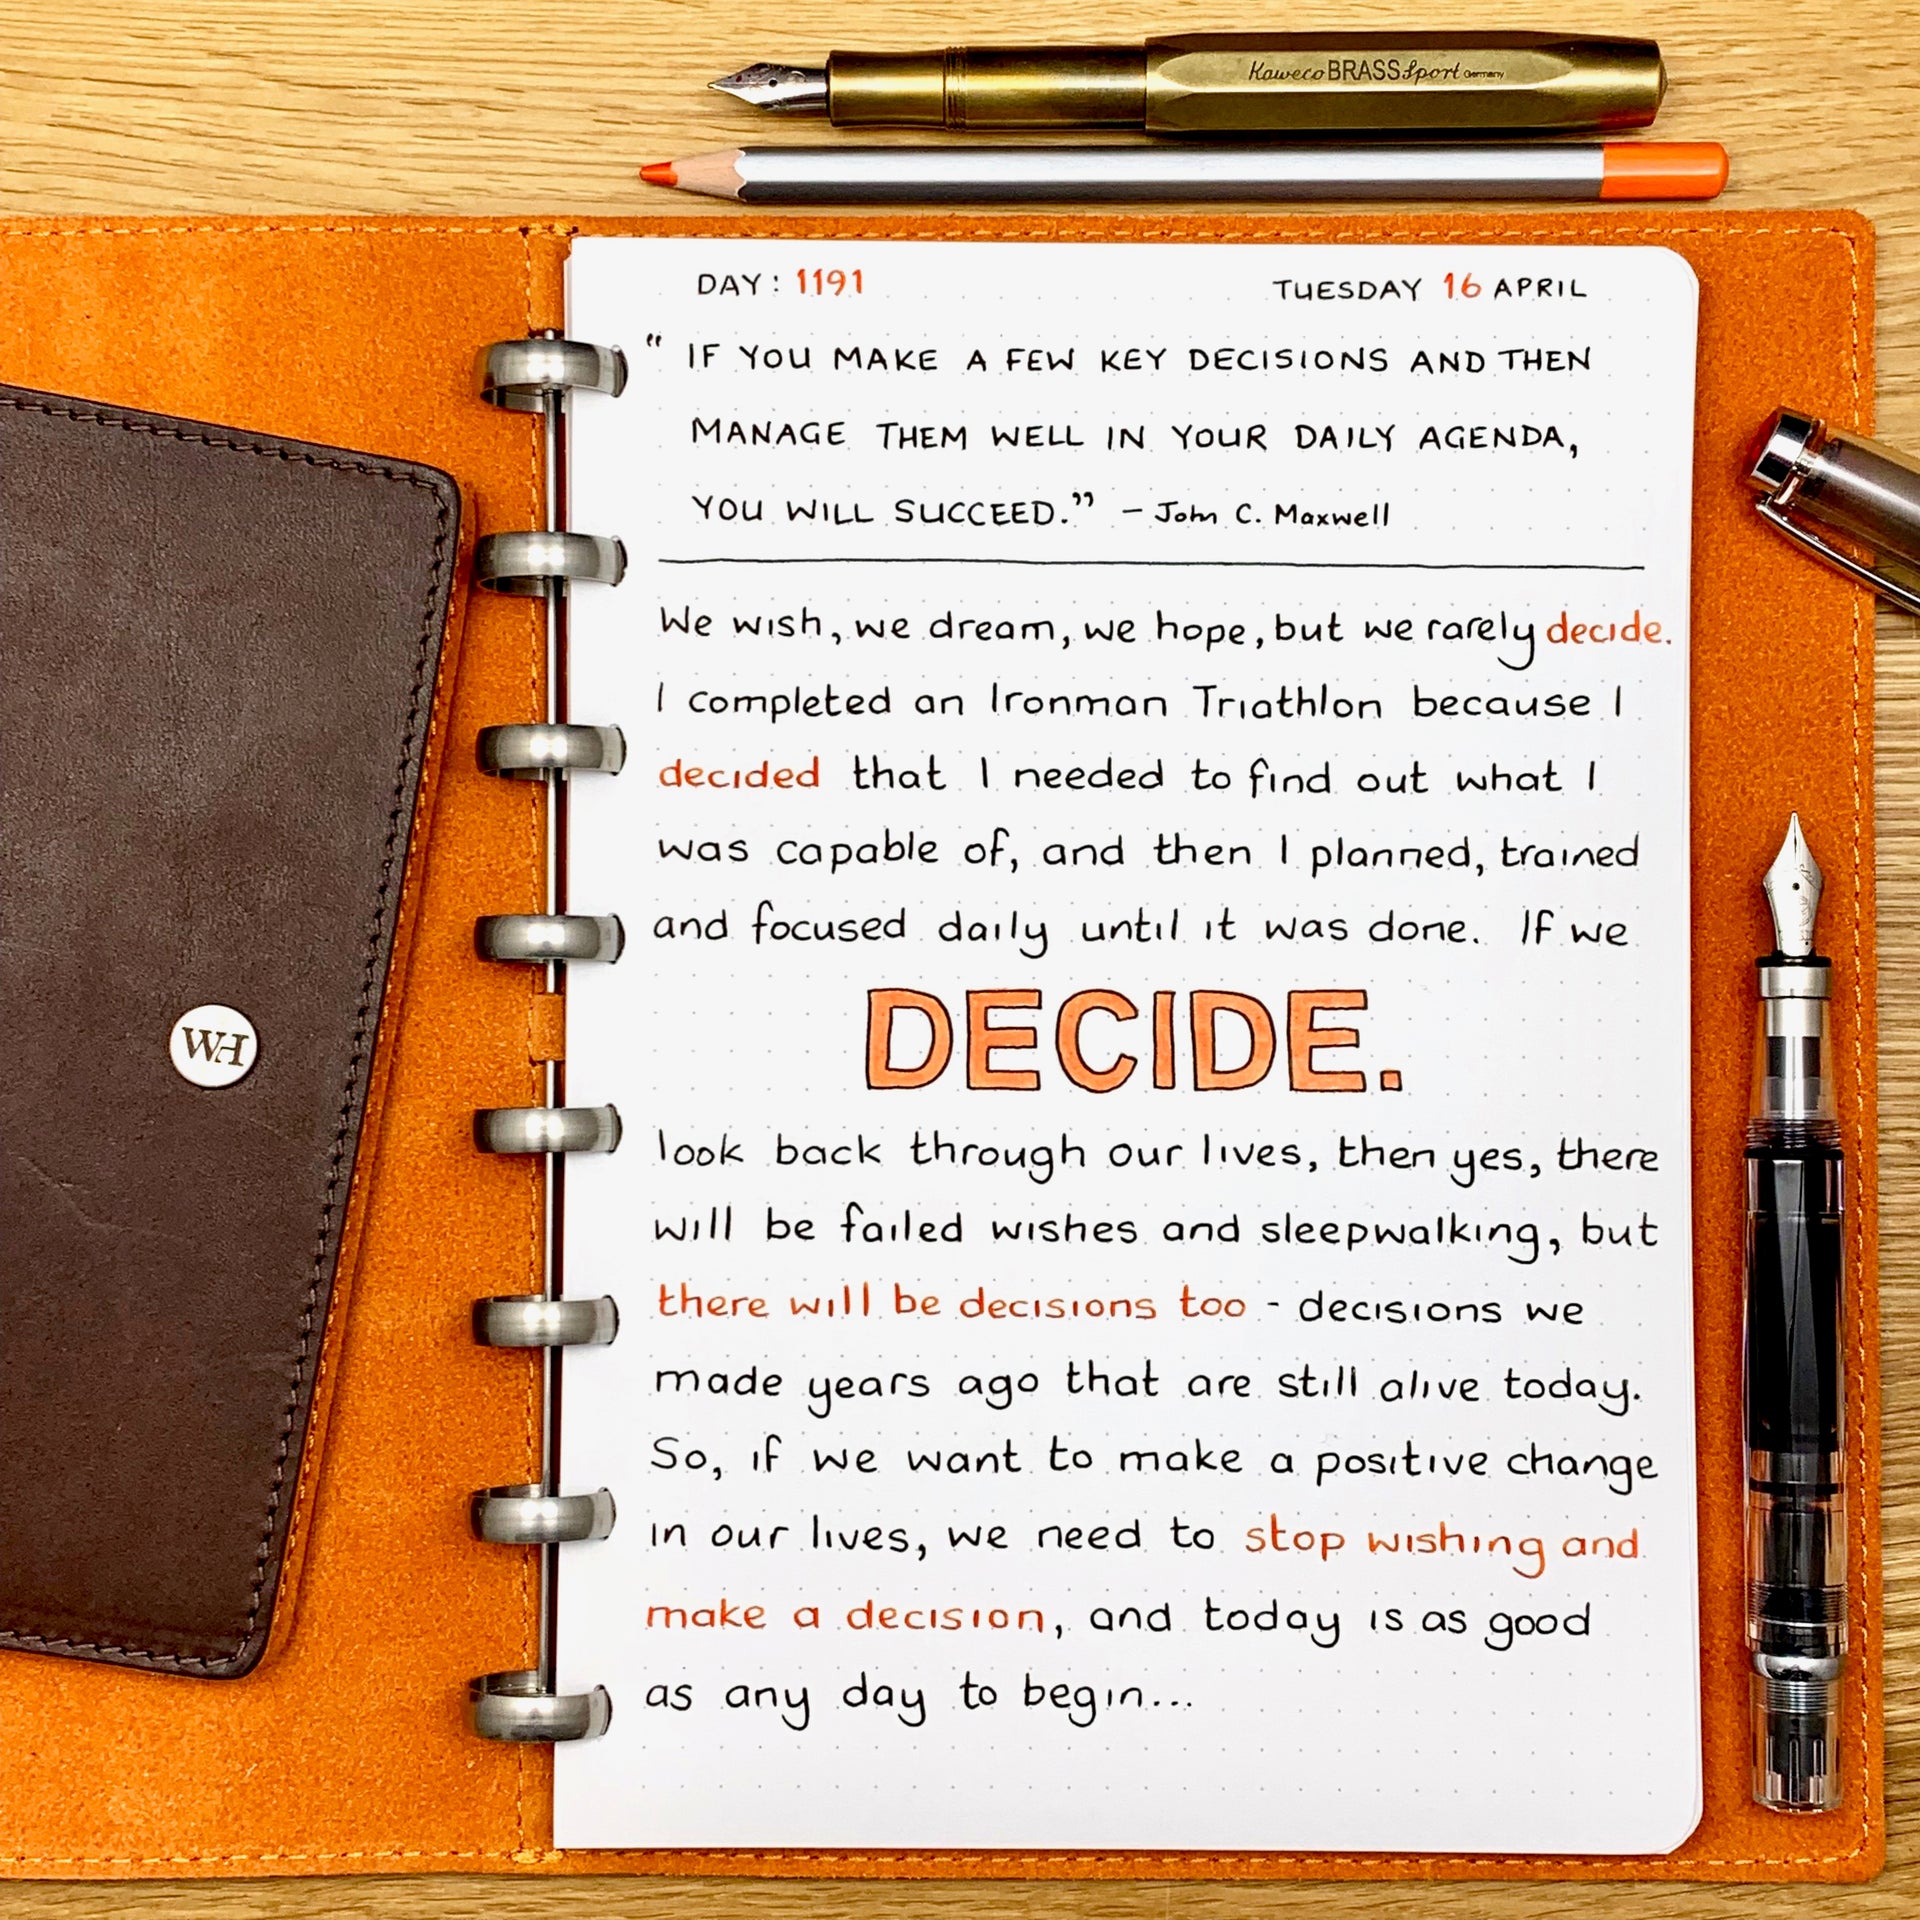 Kaweco BRASS Sport Germany
DAY: 1191 TUESDAY 16 APRIL
“ IF YOU MAKE A FEW KEY DECISIONS AND THEN
MANAGE THEM WELL IN YOUR DAILY AGENDA,
YOU WILL SUCCEED.” – John C. Maxwell
We wish, we dream, we hope, but we rarely decide.
I completed an Ironman Triathlon because I
decided that I needed to find out what I
was capable of, and then I planned, trained
and focused daily until it was done. If we
DECIDE.
look back through our lives, then yes, there
will be failed wishes and sleepwalking, but
there will be decisions too - decisions we
made years ago that are still alive today.
So, if we want to make a positive change
in our lives, we need to stop wishing and
make a decision, and today is as good
as any day to begin...
WH